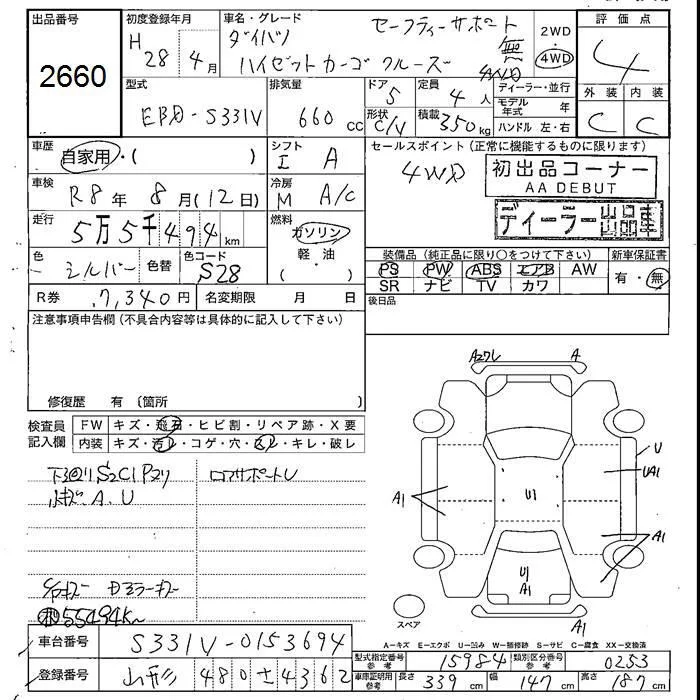 出品番号
2660
初度登録年月
H 28年 4月
車名・グレード
セーフティーサポート
ダイハツ
ハイゼットカーゴ クルーズ
無
4WD
2WD
4WD
評価点
4
外装 内装
C C
型式
EBD-S331V
排気量
660 cc
ドア 5
形状 C/V
定員 4人
積載 350kg
ディーラー・並行
モデル年式 年
ハンドル 左・右
車歴
自家用・( )
車検
R8年 8月(12日)
走行
5万5千494km
色 シルバー 色替
色コード S28
シフト
I A
冷房
M A/C
燃料
ガソリン
軽・油
( )
セールスポイント(正常に機能するものに限ります)
4WD
初出品コーナー
AA DEBUT
ディーラー出品車
装備品(純正品に限り○をつけて下さい) 新車保証書
PS PW ABS エアB AW
SR ナビ TV カワ
有・無
R券 7,340円 名変期限 月 日
後日品
注意事項申告欄(不具合内容等は具体的に記入して下さい)
修復歴 有 (箇所 )
検査員記入欄
FW キズ・飛石・ヒビ割・リペア跡・X要
内装 キズ・汚レ・コゲ・穴・スレ・キレ・破レ
下回りS2C1Pヌリ
小キズ A.U
ロアサポートU
Dミラーキズ
55494K~
A2ワレ A
U
UA1
A1 U1
A1
U1
A1
A1
スペア
A-キズ E-エクボ U-凹み W-補修跡 S-サビ C-腐食 XX-交換済
車台番号 S331V-0153694
登録番号 山形 480 ± 4362
型式指定番号 参考 15984 類別区分番号 参考 0253
車庫証明用 参考 長さ 339cm 幅 147cm 高さ 187cm